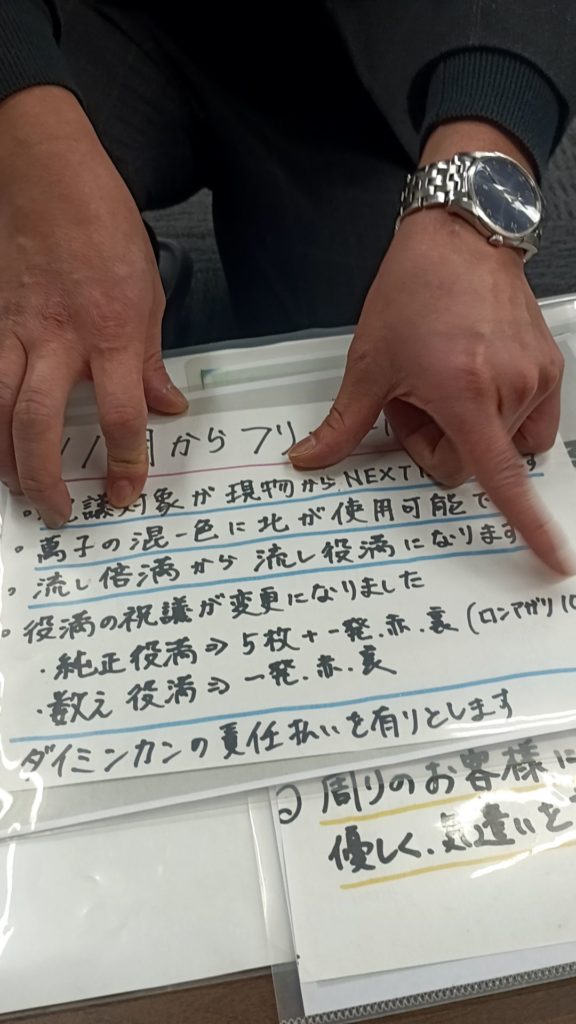 からフリー
・祝議対象が現物からNEXT す
・萬子の混一色に北が使用可能で
・流し倍満から流し役満になります
・役満の祝議が変更になりました
・純正役満⇒5枚+一発.赤.裏(ロンアガリ10
・数え役満⇒一発.赤.裏
ダイミンカンの責任払いを有りとします
周りのお客様に
優しく.気遣いを